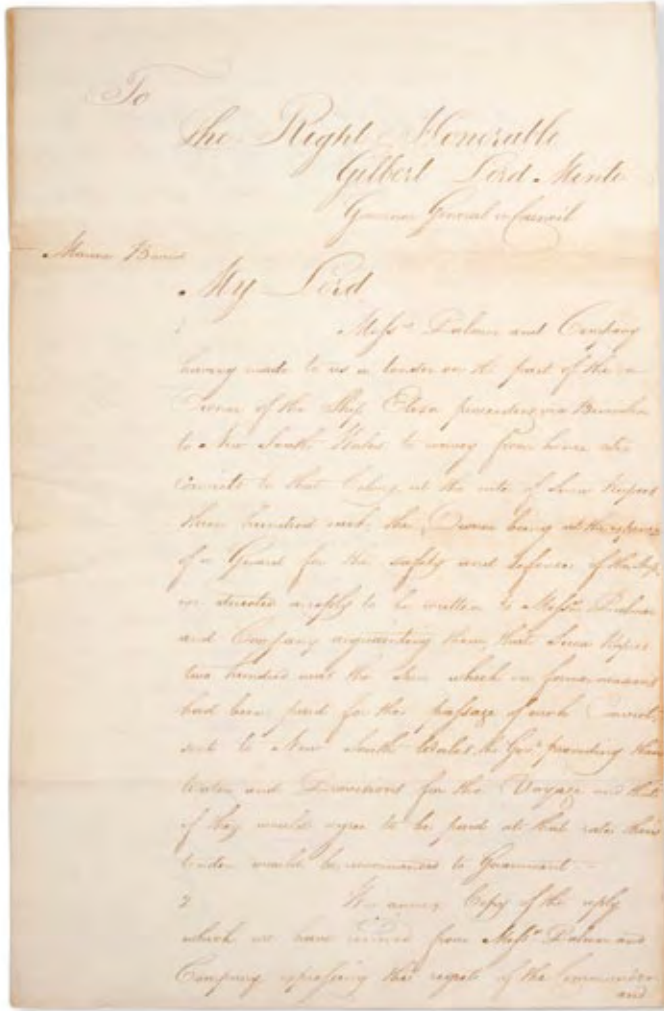 To
The Right Honorable
Gilbert Lord Minto
Governor General in Council
Marine Board
My Lord
Messrs Palmer and Company
having made to us a tender on the part of the
Owner of the Ship Eliza proceeding via
to New South Wales to convey from hence the
Convicts to that Colony at the rate of Sicca Rupees
three hundred each, the Owner being at the expence
of a Guard for the safety and defence of the Ship,
we directed a reply to be written to Messrs Palmer
and Company acquainting them, that Sicca Rupees
two hundred was the Sum which on former occasions
had been paid for the passage of each Convict
sent to New South Wales, the Govt. providing them
Water and Provisions for the Voyage and that
if they would agree to be paid at that rate their
tender would be recommended to Government
2 We annex Copy of the reply
which we have received from Messrs Palmer and
Company expressing the regrets of the Commander
and